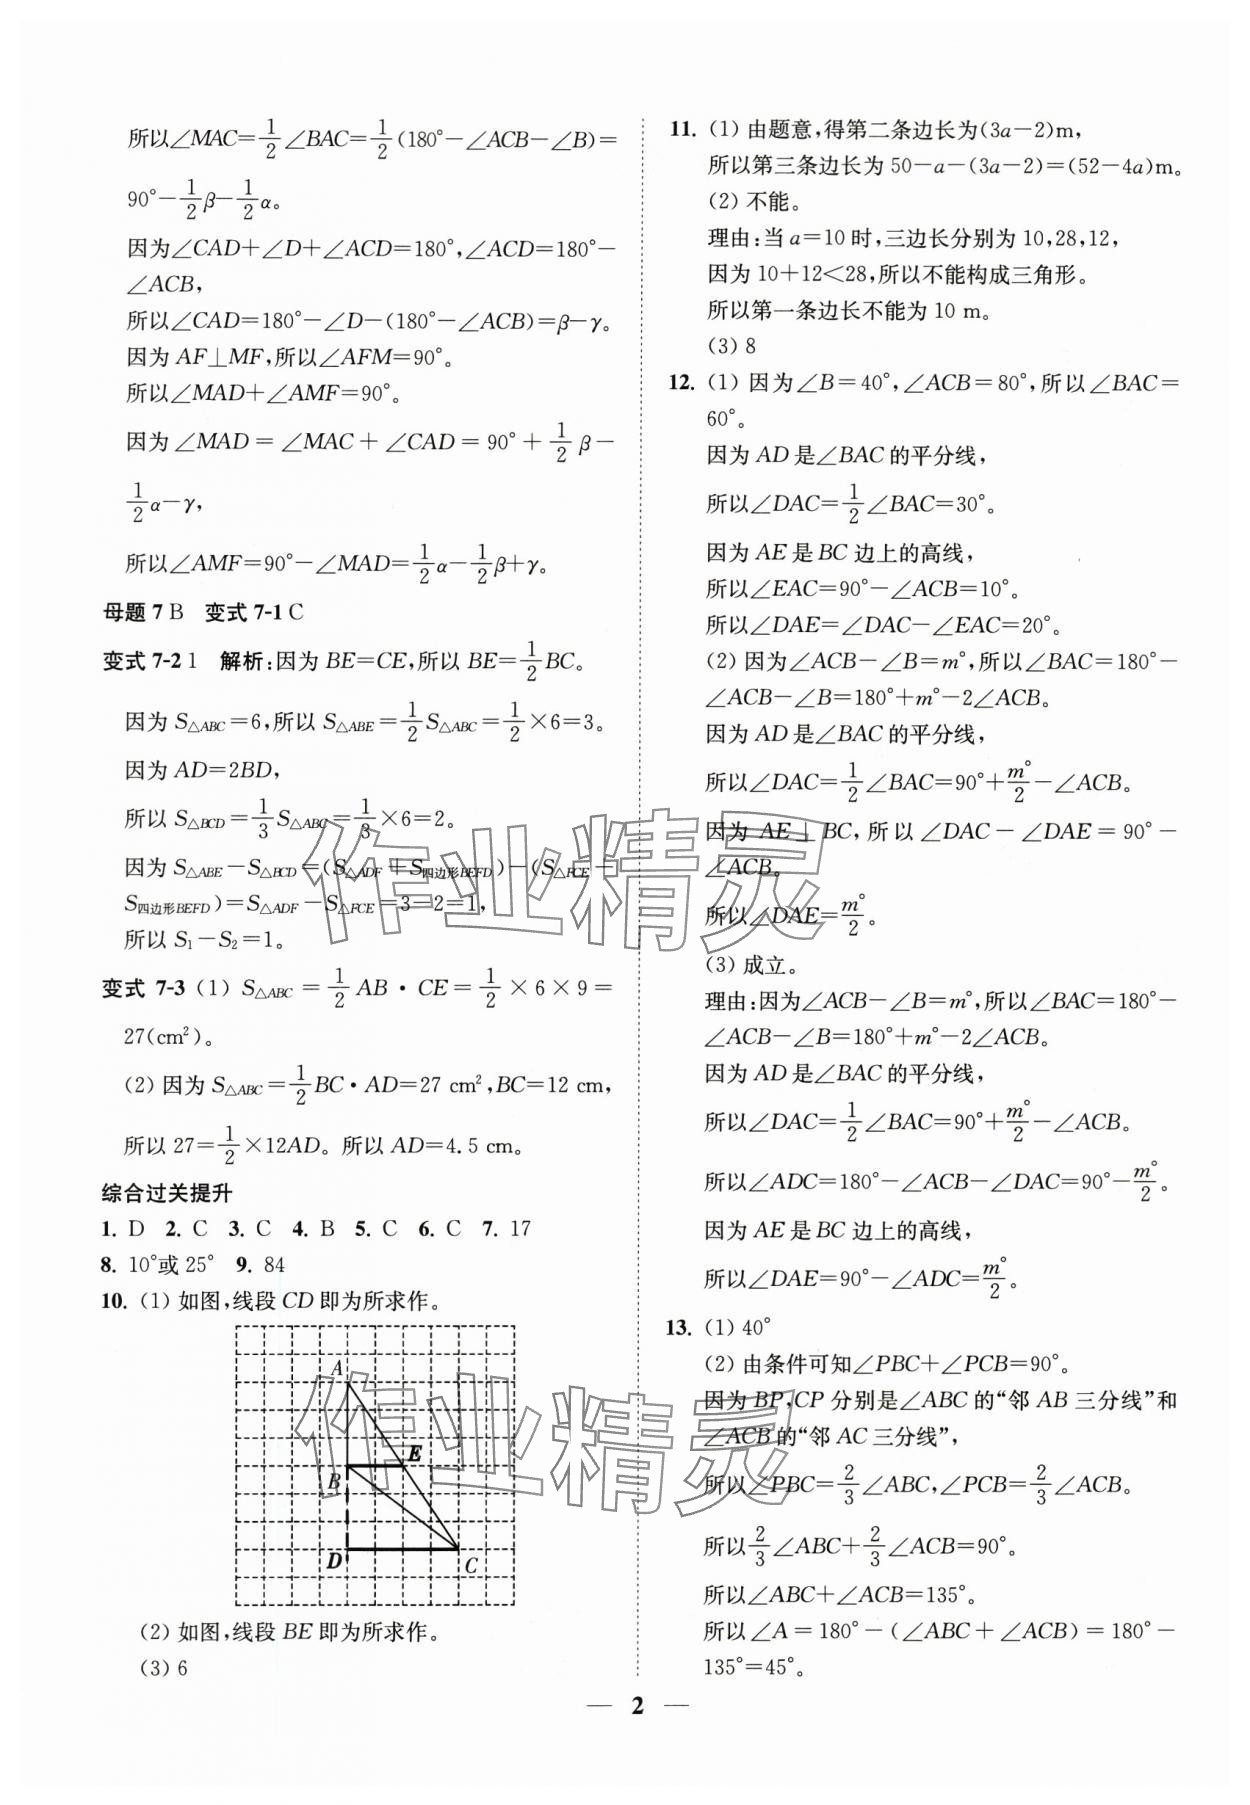 所以∠MAC=1/2∠BAC=1/2(180°-∠ACB-∠B)=
90°-1/2β-1/2α。
因为∠CAD+∠D+∠ACD=180°,∠ACD=180°-
∠ACB,
所以∠CAD=180°-∠D-(180°-∠ACB)=β-γ。
因为 AF⊥MF,所以∠AFM=90°。
所以∠MAD+∠AMF=90°。
因为∠MAD=∠MAC+∠CAD=90°+1/2β-
1/2α-γ,
所以∠AMF=90°-∠MAD=1/2α-1/2β+γ。
母题 7 B 变式 7-1 C
变式 7-2 1 解析:因为 BE=CE,所以 BE=1/2BC。
因为 S△ABC=6,所以 S△ABE=1/2S△ABC=1/2×6=3。
因为 AD=2BD,
所以 S△BCD=1/3S△ABC=1/3×6=2。
因为 S△ABE-S△BCD=(S△ADF+S四边形BEFD)-(S△FCE+
S四边形BEFD)=S△ADF-S△FCE=3-2=1,
所以 S₁-S₂=1。
变式 7-3 (1) S△ABC=1/2AB·CE=1/2×6×9=
27(cm²)。
(2) 因为 S△ABC=1/2BC·AD=27 cm²,BC=12 cm,
所以 27=1/2×12AD。所以 AD=4.5 cm。
综合过关提升
1. D 2. C 3. C 4. B 5. C 6. C 7. 17
8. 10°或 25° 9. 84
10. (1) 如图,线段 CD 即为所求作。
A
E
B
D
C
(2) 如图,线段 BE 即为所求作。
(3) 6
11. (1) 由题意,得第二条边长为(3a-2)m,
所以第三条边长为 50-a-(3a-2)=(52-4a)m。
(2) 不能。
理由:当 a=10 时,三边长分别为 10,28,12,
因为 10+12<28,所以不能构成三角形。
所以第一条边长不能为 10 m。
(3) 8
12. (1) 因为∠B=40°,∠ACB=80°,所以∠BAC=
60°。
因为 AD 是∠BAC 的平分线,
所以∠DAC=1/2∠BAC=30°。
因为 AE 是 BC 边上的高线,
所以∠EAC=90°-∠ACB=10°。
所以∠DAE=∠DAC-∠EAC=20°。
(2) 因为∠ACB-∠B=m°,所以∠BAC=180°-
∠ACB-∠B=180°+m°-2∠ACB。
因为 AD 是∠BAC 的平分线,
所以∠DAC=1/2∠BAC=90°+m°/2-∠ACB。
因为 AE⊥BC,所以∠DAC-∠DAE=90°-
∠ACB。
所以∠DAE=m°/2。
(3) 成立。
理由:因为∠ACB-∠B=m°,所以∠BAC=180°-
∠ACB-∠B=180°+m°-2∠ACB。
因为 AD 是∠BAC 的平分线,
所以∠DAC=1/2∠BAC=90°+m°/2-∠ACB。
所以∠ADC=180°-∠ACB-∠DAC=90°-m°/2。
因为 AE 是 BC 边上的高线,
所以∠DAE=90°-∠ADC=m°/2。
13. (1) 40°
(2) 由条件可知∠PBC+∠PCB=90°。
因为 BP,CP 分别是∠ABC 的“邻 AB 三分线”和
∠ACB 的“邻 AC 三分线”,
所以∠PBC=2/3∠ABC,∠PCB=2/3∠ACB。
所以2/3∠ABC+2/3∠ACB=90°。
所以∠ABC+∠ACB=135°。
所以∠A=180°-(∠ABC+∠ACB)=180°-
135°=45°。
— 2 —
作业精灵
作业精灵